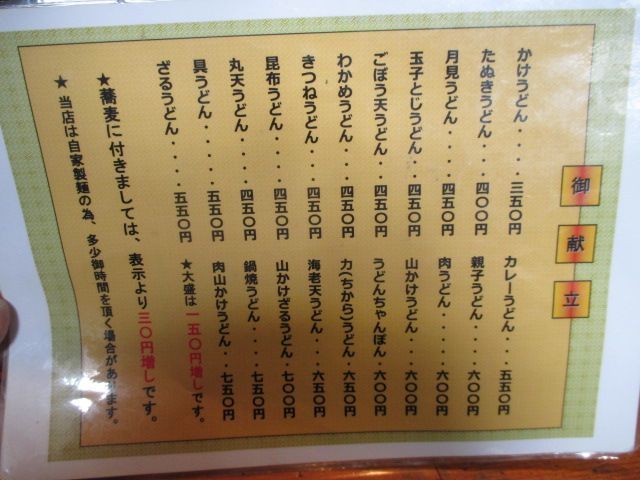 御献立
かけうどん・・・・三五〇円
たぬきうどん・・・四〇〇円
月見うどん・・・・四五〇円
玉子とじうどん・・四五〇円
ごぼう天うどん・・四五〇円
わかめうどん・・・四五〇円
きつねうどん・・・四五〇円
昆布うどん・・・・四五〇円
丸天うどん・・・・四五〇円
具うどん・・・・・五五〇円
ざるうどん・・・・五五〇円
カレーうどん・・・五五〇円
親子うどん・・・・六〇〇円
肉うどん・・・・・六〇〇円
山かけうどん・・・六〇〇円
うどんちゃんぽん・六〇〇円
力(ちから)うどん・・六五〇円
海老天うどん・・・六五〇円
山かけざるうどん・七〇〇円
鍋焼うどん・・・・七五〇円
肉山かけうどん・・七五〇円
★大盛は一五〇円増しです。
★蕎麦に付きましては、表示より三〇円増しです。
★当店は自家製麺の為、多少御時間を頂く場合があります。